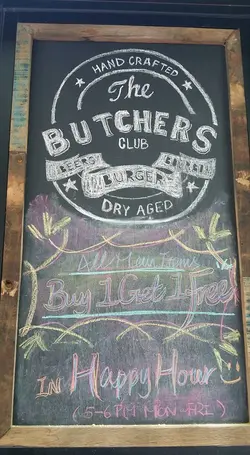 HAND CRAFTED
The
BUTCHERS
CLUB
BEERS BURGERS BOURBON
DRY AGED
All Item Items
Buy 1 Get 1 Free
IN Happy Hour
(5-6PM MON-FRI)